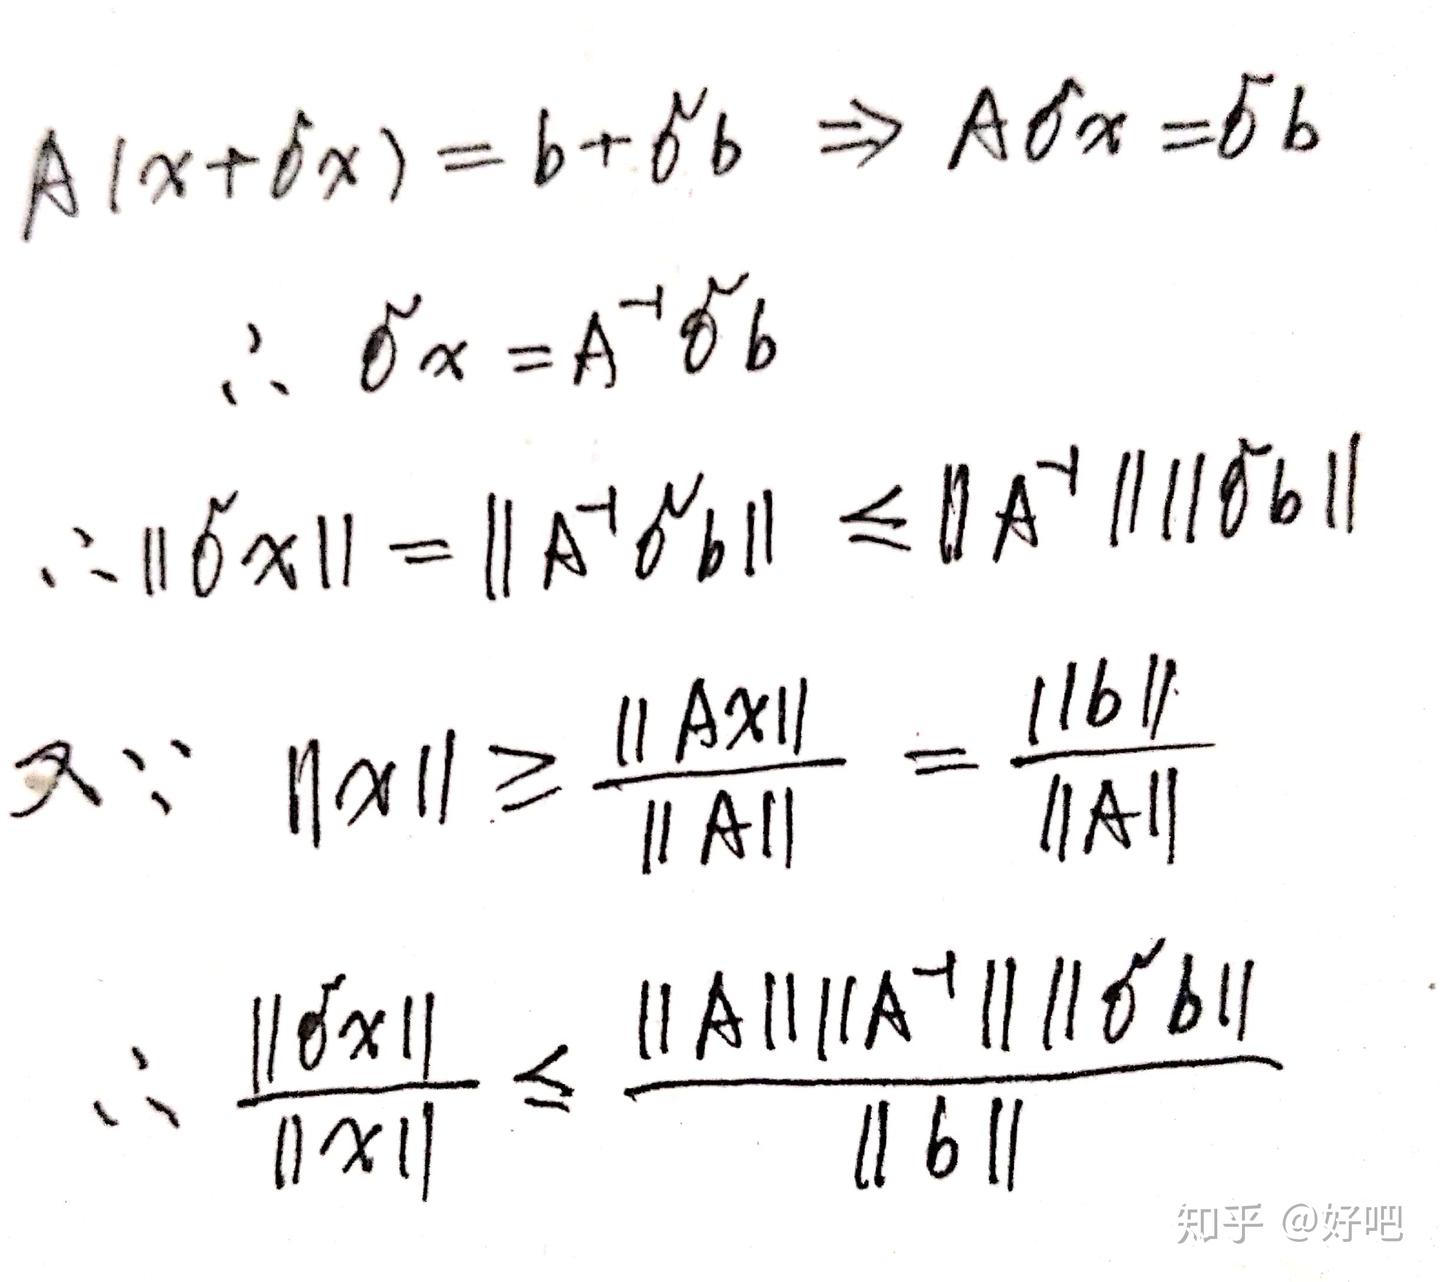 A(x+δx)=b+δb ⇒ Aδx=δb
∴ δx=A⁻¹δb
∴ ||δx|| = ||A⁻¹δb|| ≤ ||A⁻¹|| ||δb||
又∵ ||x|| ≥ ||Ax|| / ||A|| = ||b|| / ||A||
∴ ||δx|| / ||x|| ≤ ||A|| ||A⁻¹|| ||δb|| / ||b||
知乎 @好吧